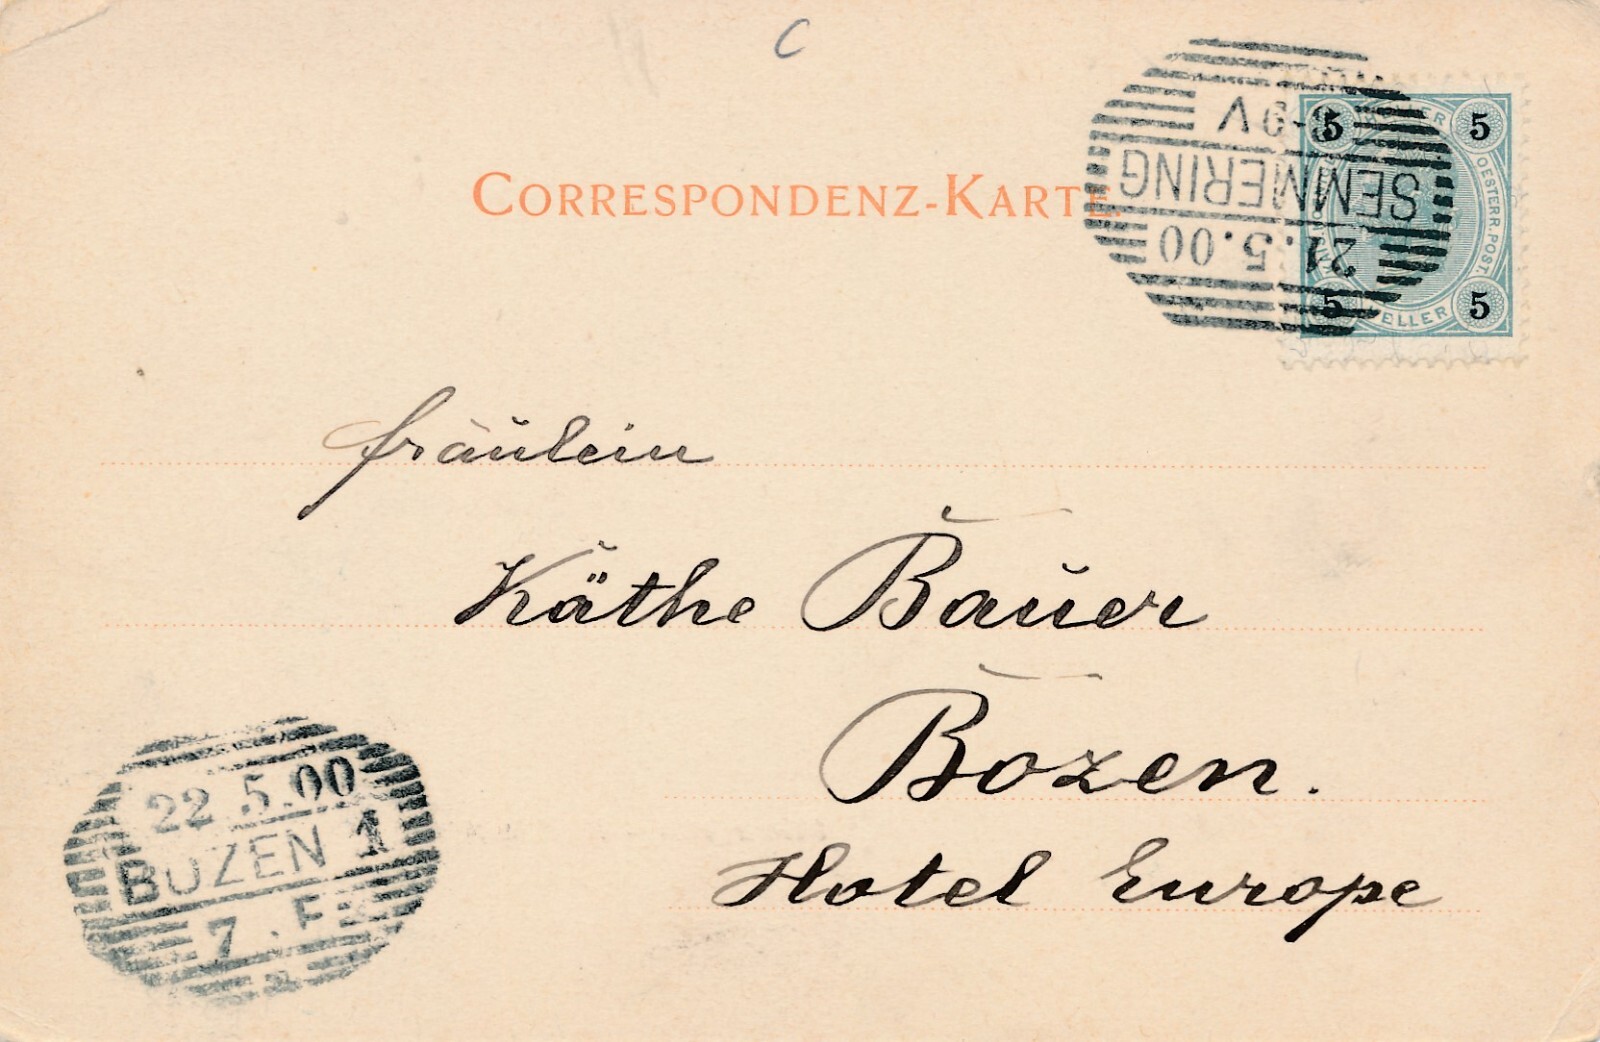 C
CORRESPONDENZ-KARTE.
5 5
OESTERR. POST.
5 HELLER 5
8-9V
SEMMERING
21.5.00
Fräulein
Käthe Bauer
Bozen.
Hotel Europe
22.5.00
BOZEN 1
7. F